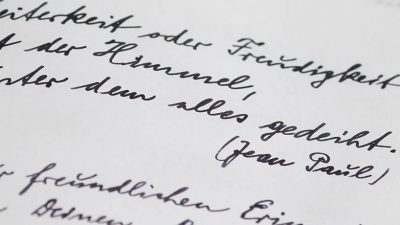 eiterkeit oder Freudigkeit
t der Himmel,
nter dem alles gedeiht.
(Jean Paul)
r freundlichen Erin
Deinen